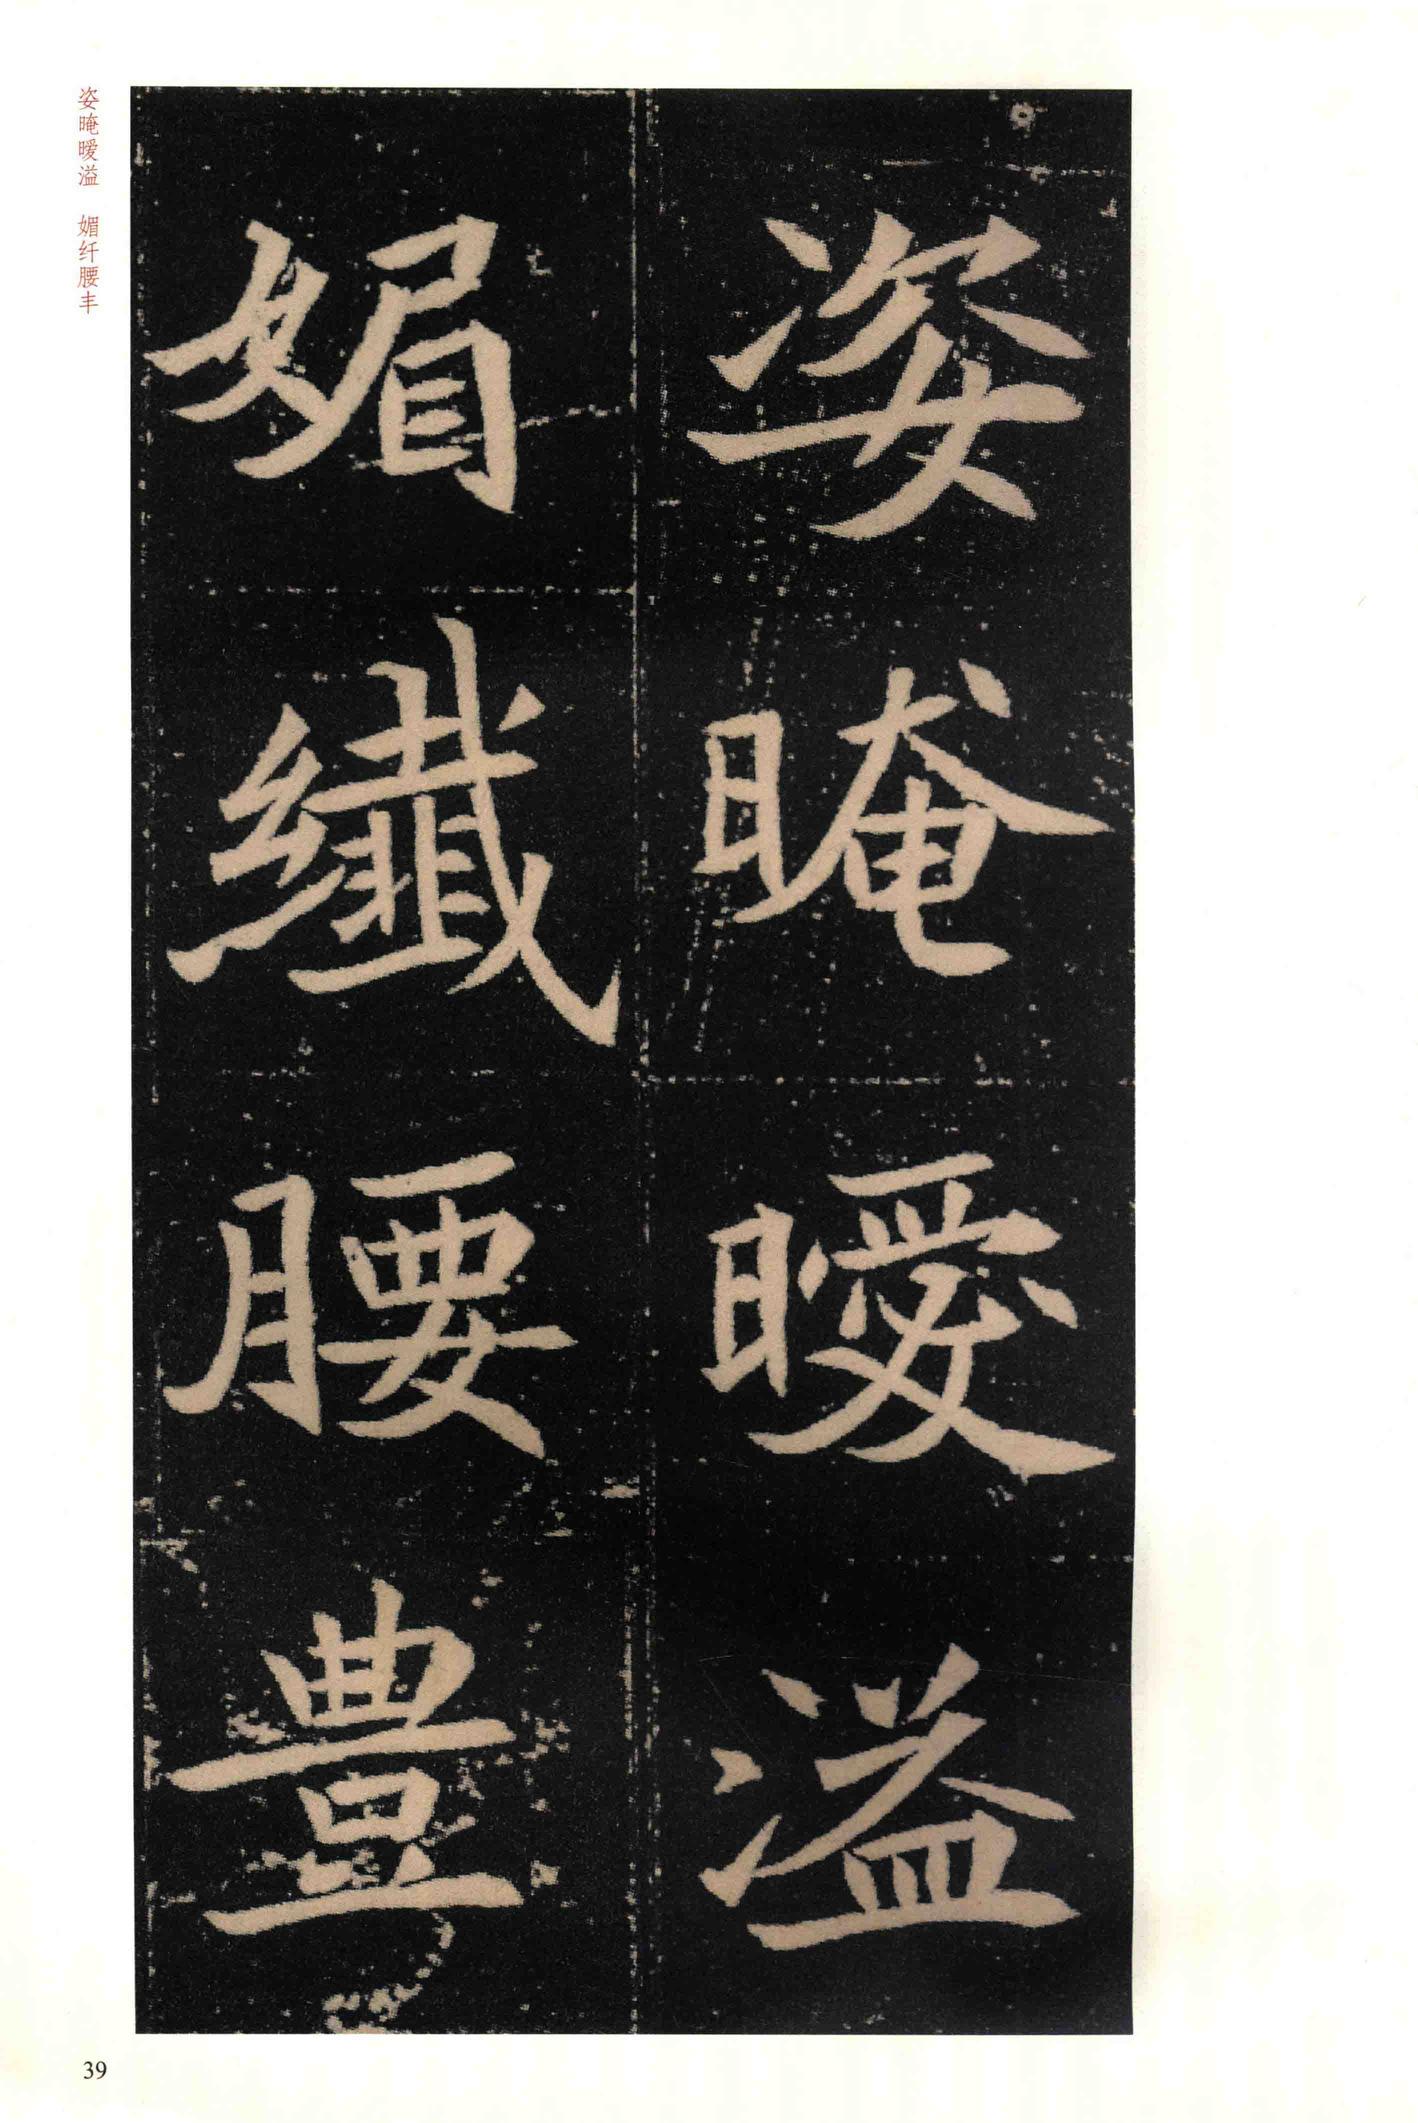 姿晻曖溢
媚纖腰豊
姿晻暧溢 媚纤腰丰
39